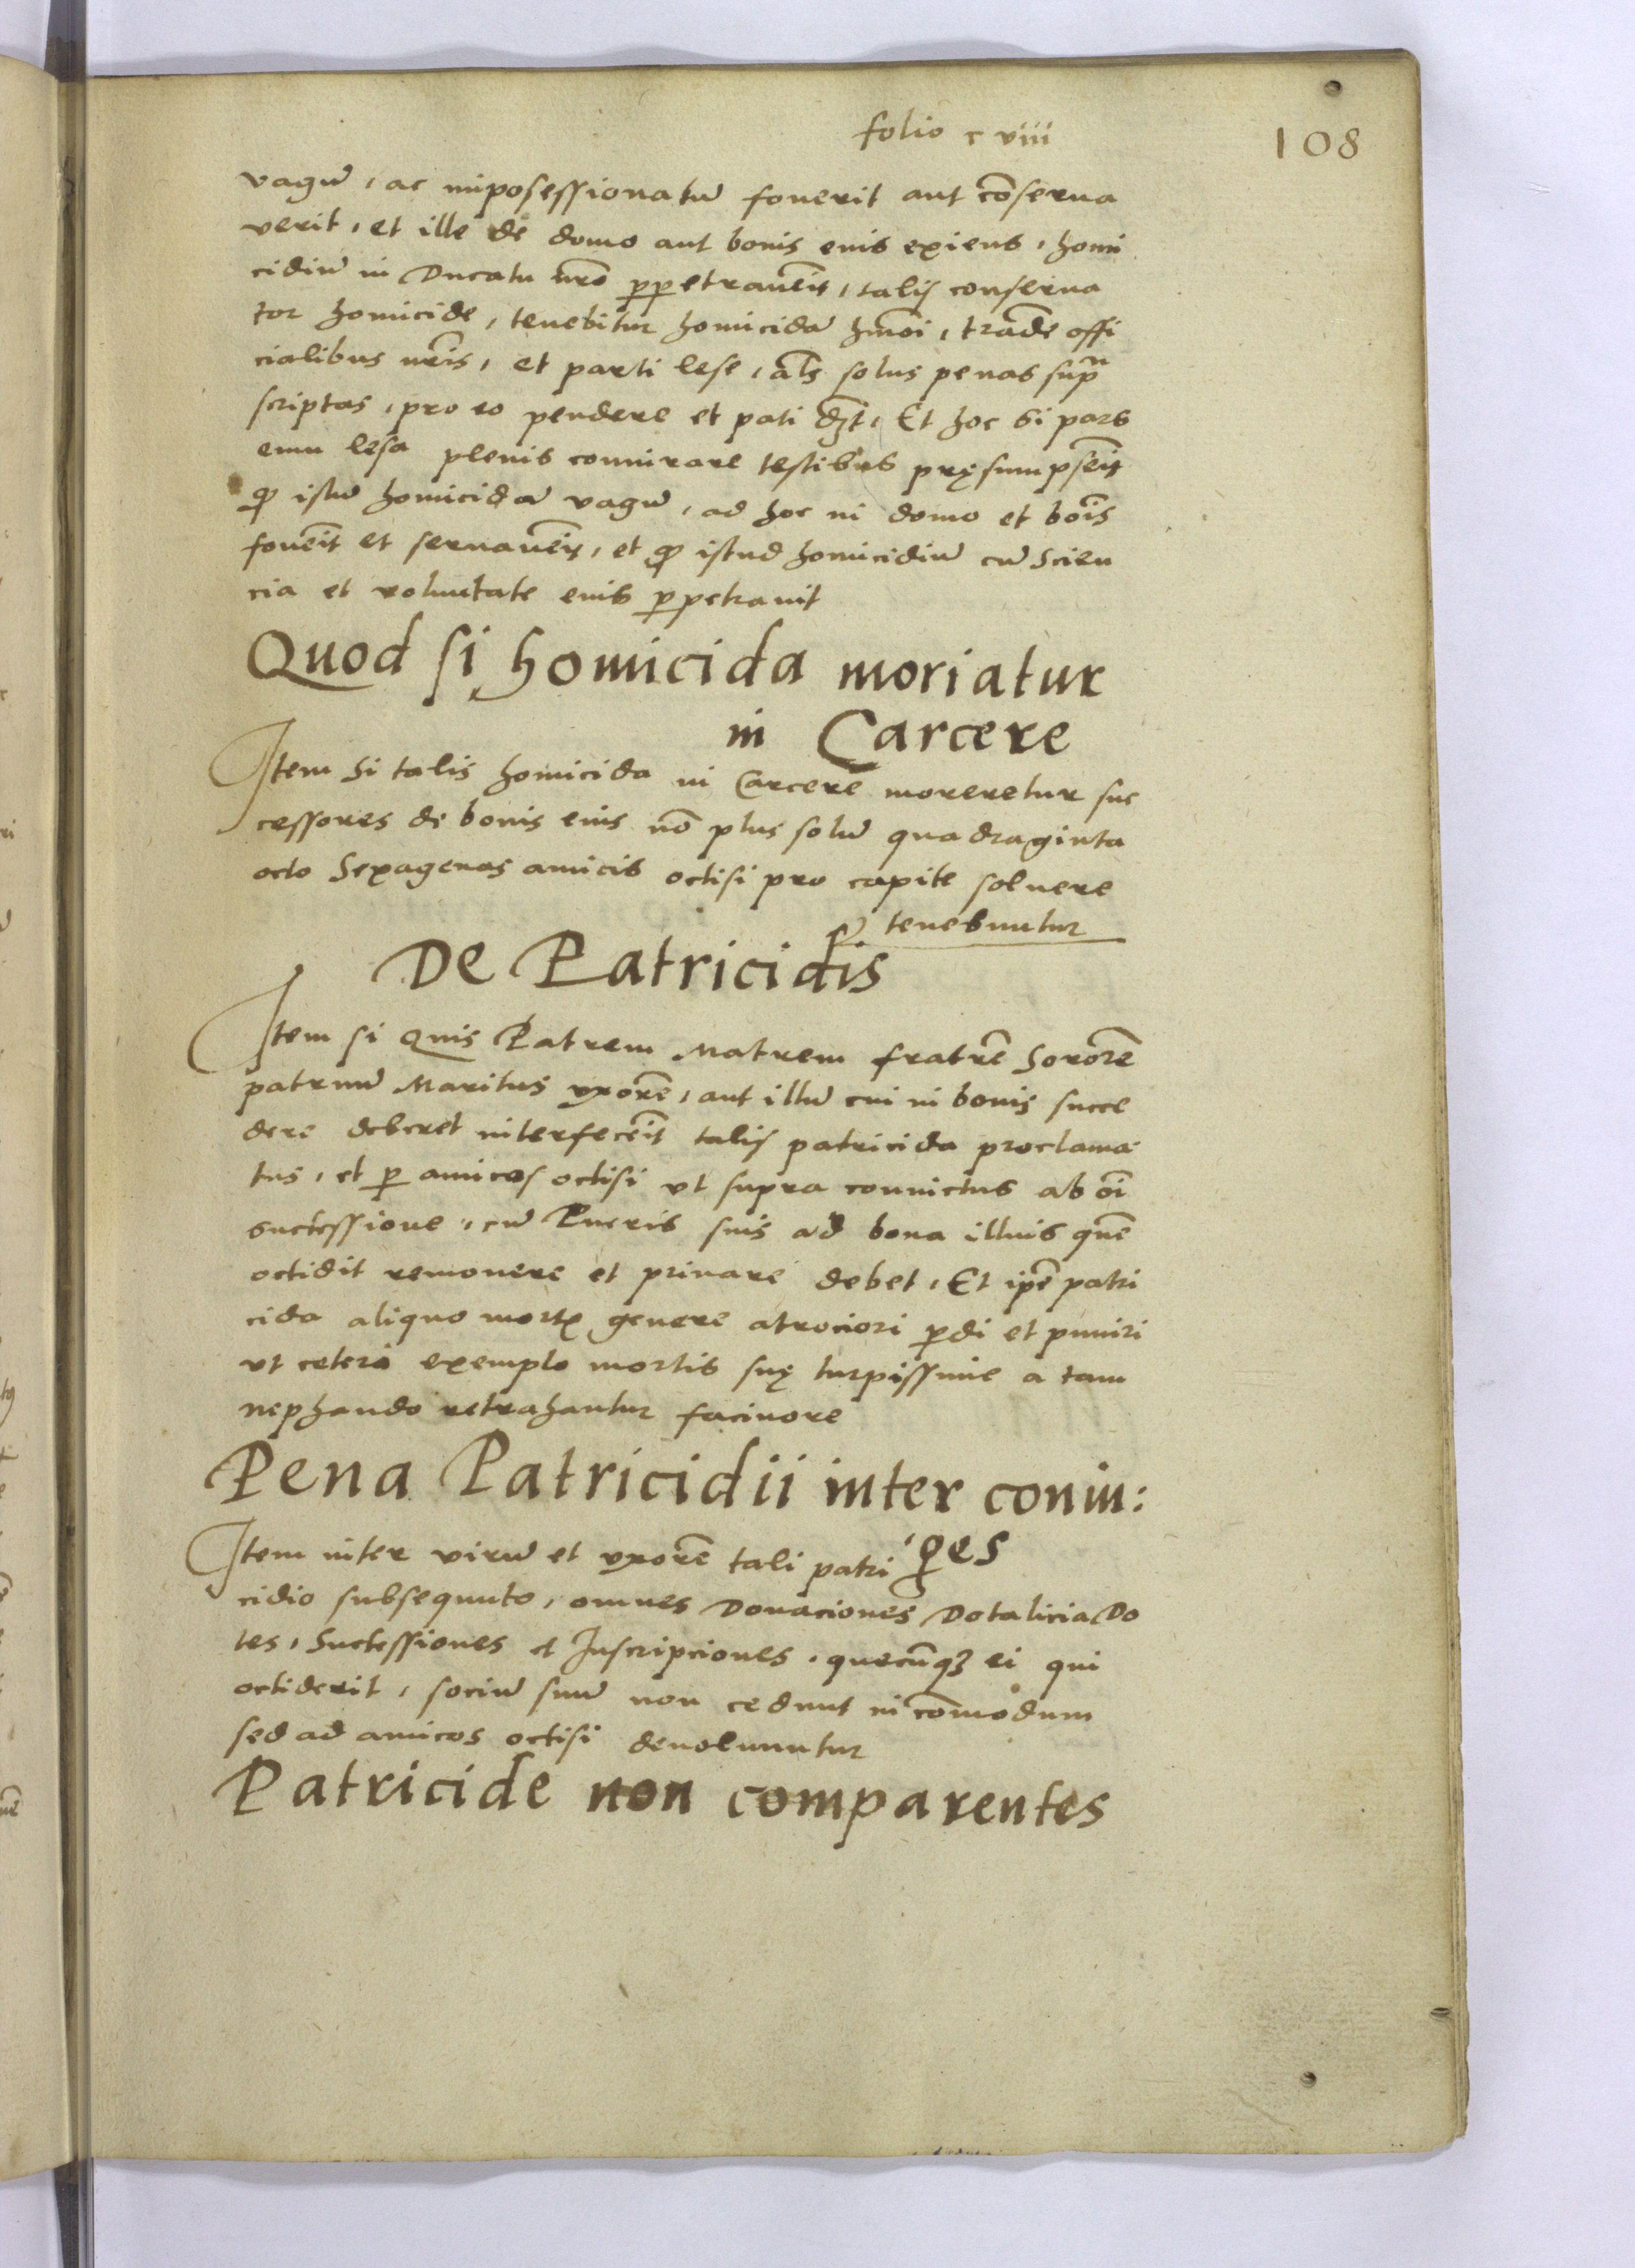 folio c viii
108
vagu̅, ac impossessionatu̅ fouerit aut co̅serua
verit, et ille de domo aut bonis eius exiens, homi
cidiu̅ in Ducatu nr̅o ꝑpetraueri̅t, talis conserua
tor homicide, tenebitur homicida̅ hm̅oi, trade̅ offi
cialibus nr̅is, et parti lese, al̅s solus penas supra
scriptas, pro eo pendere et pati d̅t, Et hoc si pars
enim lesa plenis coniurare testibus pręsumpse̅it
ꝙ istu̅ homicida̅ vagu̅, ad hoc in domo et bo̅is
foue̅it et seruaue̅it, et ꝙ istud homicidiu̅ cu̅ scien
cia et voluntate eius ꝑpetrauit
Quod si homicida moriatur
in Carcere
Item si talis homicida in Carcere moreretur suc
cessores de bonis eius no̅ plus solu̅ quadraginta
octo Sexagenas amicis occisi pro capite soluere
tenebuntur
De Patricidis
Item si Quis Patrem Matrem fratre̅ Sorore̅
patruu̅ Maritus vxore̅, aut illu̅ cui in bonis succe
dere deberet interfece̅it talis patricida proclama
tus, et ꝑ amicos occisi vt supra conuictus ab o̅i
successione, cu̅ Pueris suis ad bona illius que̅
occidit remouere et priuare debet, Et ip̅e patri
cida aliquo mortꝭ genere atrociori ꝑdi et puniri
vt ceteri exemplo mortis suę turpissime a tam
nephando retrahantur facinore
Pena Patricidii inter coniu:
ges
Item inter viru̅ et vxore̅ tali patri
cidio subsequuto, omnes Donaciones Dotalicia Do
tes, Successiones et Inscripciones, quecu̅qꝫ ei qui
occiderit, sociu̅ suu̅ non cedunt in co̅modum
sed ad amicos occisi deuoluuntur
Patricide non comparentes